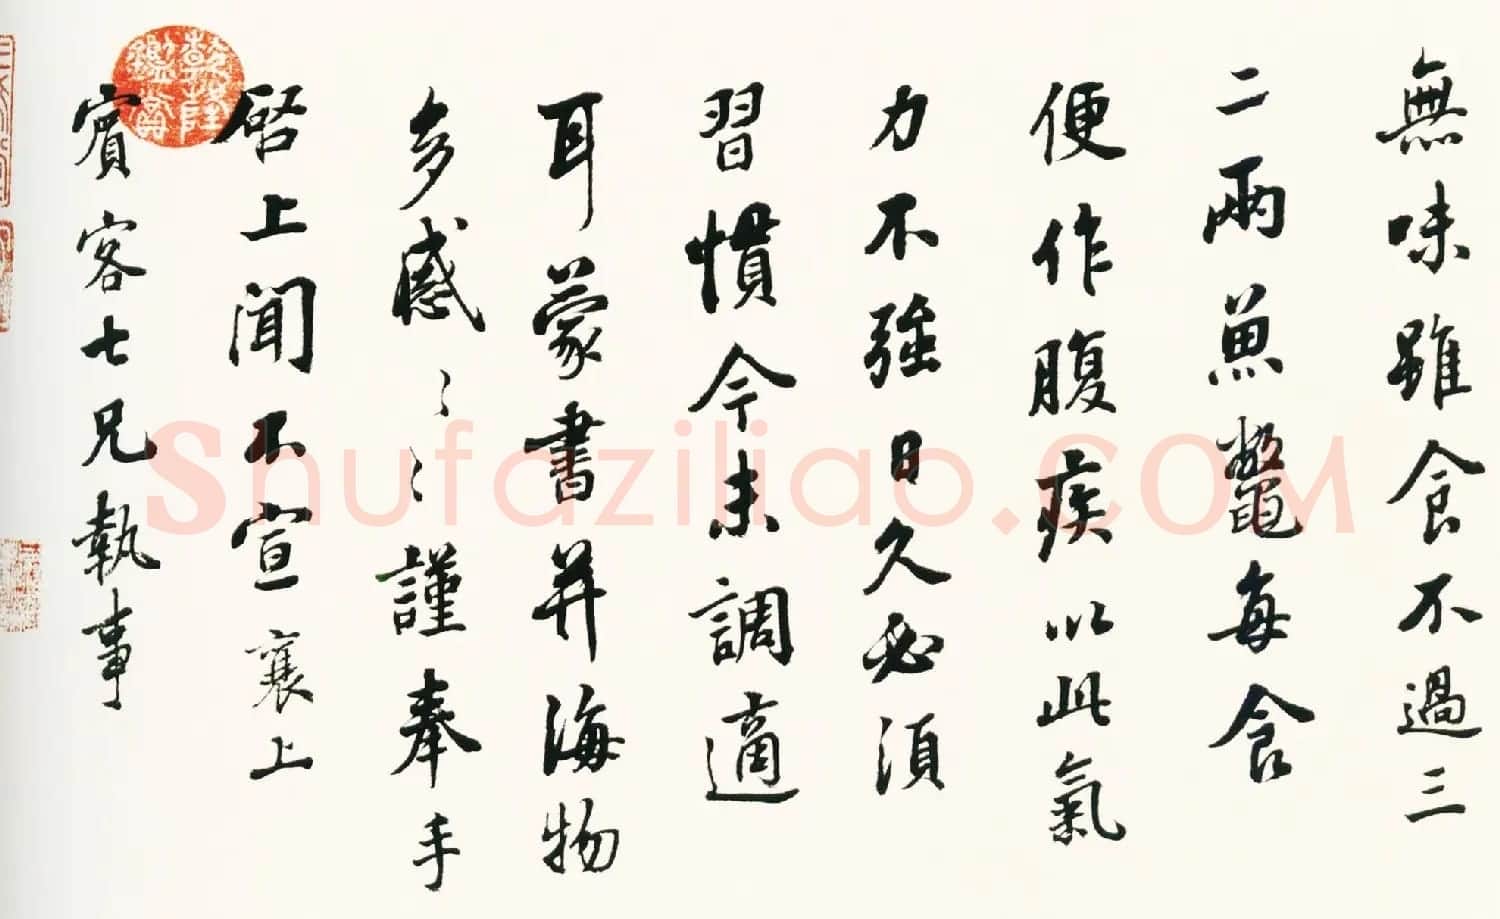 無味雖食不過三
二兩魚鼈每食
便作腹疾以此氣
力不強日久必須
習慣今未調適
耳蒙書并海物
多感ミミ謹奉手
啓上聞不宣襄上
賓客七兄執事
乾隆鑑賞
Shufaziliao.COM